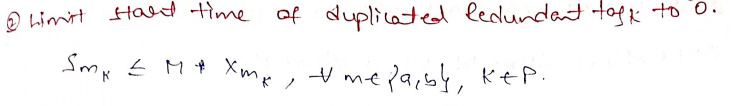 ② Limit start time of duplicated redundant task to 0.
Smₖ ≤ M * Xmₖ , ∀ m ∈ {a,b}, K ∈ P.